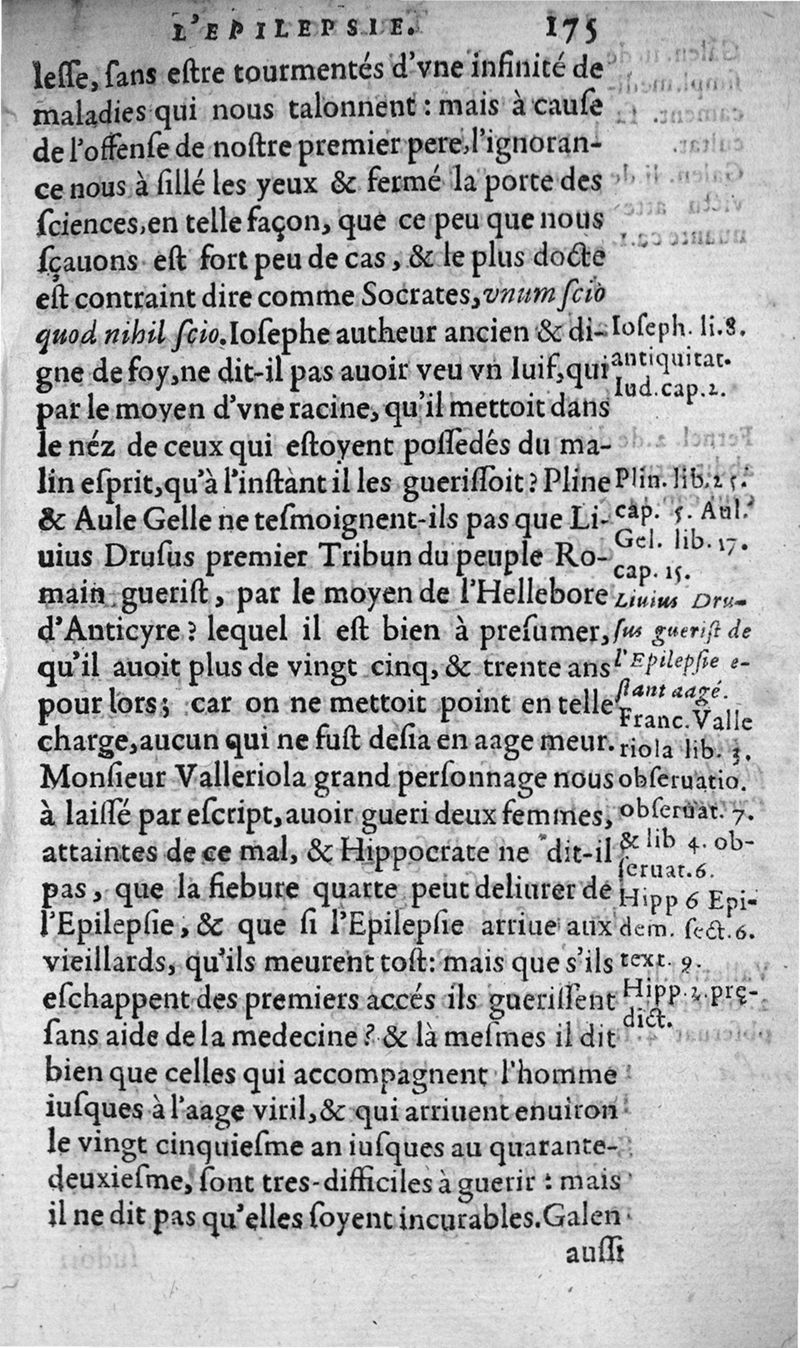 L'EPILEPSIE. 175
leſſe, ſans eſtre tourmentés d'vne infinité de
maladies qui nous talonnent : mais à cauſe
de l'offenſe de noſtre premier pere, l'ignoran-
ce nous à ſillé les yeux & fermé la porte des
ſciences, en telle façon, que ce peu que nous
ſçauons eſt fort peu de cas, & le plus docte
eſt contraint dire comme Socrates, vnum ſcio
quod nihil ſcio. Ioſephe autheur ancien & di-
gne de foy, ne dit-il pas auoir veu vn Iuif, qui
par le moyen d'vne racine, qu'il mettoit dans
le néz de ceux qui eſtoyent poſſedés du ma-
lin eſprit, qu'à l'inſtant il les gueriſſoit ? Pline
& Aule Gelle ne teſmoignent-ils pas que Li-
uius Druſus premier Tribun du peuple Ro-
main gueriſt, par le moyen de l'Hellebore
d'Anticyre ? lequel il eſt bien à preſumer,
qu'il auoit plus de vingt cinq, & trente ans
pour lors; car on ne mettoit point en telle
charge, aucun qui ne fuſt deſia en aage meur.
Monſieur Valleriola grand perſonnage nous
à laiſſé par eſcript, auoir gueri deux femmes,
attaintes de ce mal, & Hippocrate ne dit-il
pas, que la fiebure quarte peut deliurer de
l'Epilepſie, & que ſi l'Epilepſie arriue aux
vieillards, qu'ils meurent toſt: mais que s'ils
eſchappent des premiers accés ils gueriſſent
ſans aide de la medecine ? & là meſmes il dit
bien que celles qui accompagnent l'homme
iuſques à l'aage viril, & qui arriuent enuiron
le vingt cinquieſme an iuſques au quarante-
deuxieſme, ſont tres-difficiles à guerir : mais
il ne dit pas qu'elles ſoyent incurables. Galen
auſſi
Ioſeph. li. 8.
antiquitat.
Iud. cap. 2.
Plin. lib. 25.
cap. 5. Aul.
Gel. lib. 17.
cap. 15.
Liuius Dru-
ſus gueriſt de
l'Epilepſie e-
ſtant aagé.
Franc. Valle
riola lib. 3.
obſeruatio.
obſeruat. 7.
& lib 4. ob-
ſeruat. 6.
Hipp 6 Epi-
dem. ſect. 6.
text. 9.
Hipp. 2. prę-
dict.